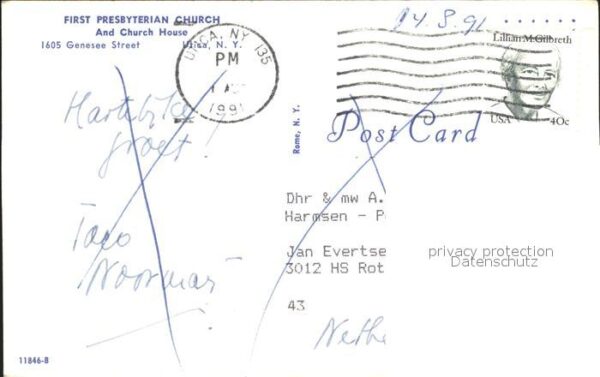 FIRST PRESBYTERIAN CHURCH
And Church House
1605 Genesee Street Utica, N. Y.
UTICA, NY 135
PM
1991
14.8.91
Lillian M. Gilbreth
USA 40c
Post Card
Rome, N. Y.
Hartelijke
groet!
Taco
Noorman
Dhr & mw A.
Harmsen - P
Jan Evertse
3012 HS Rot
43
Nethe
privacy protection
Datenschutz
11846-B